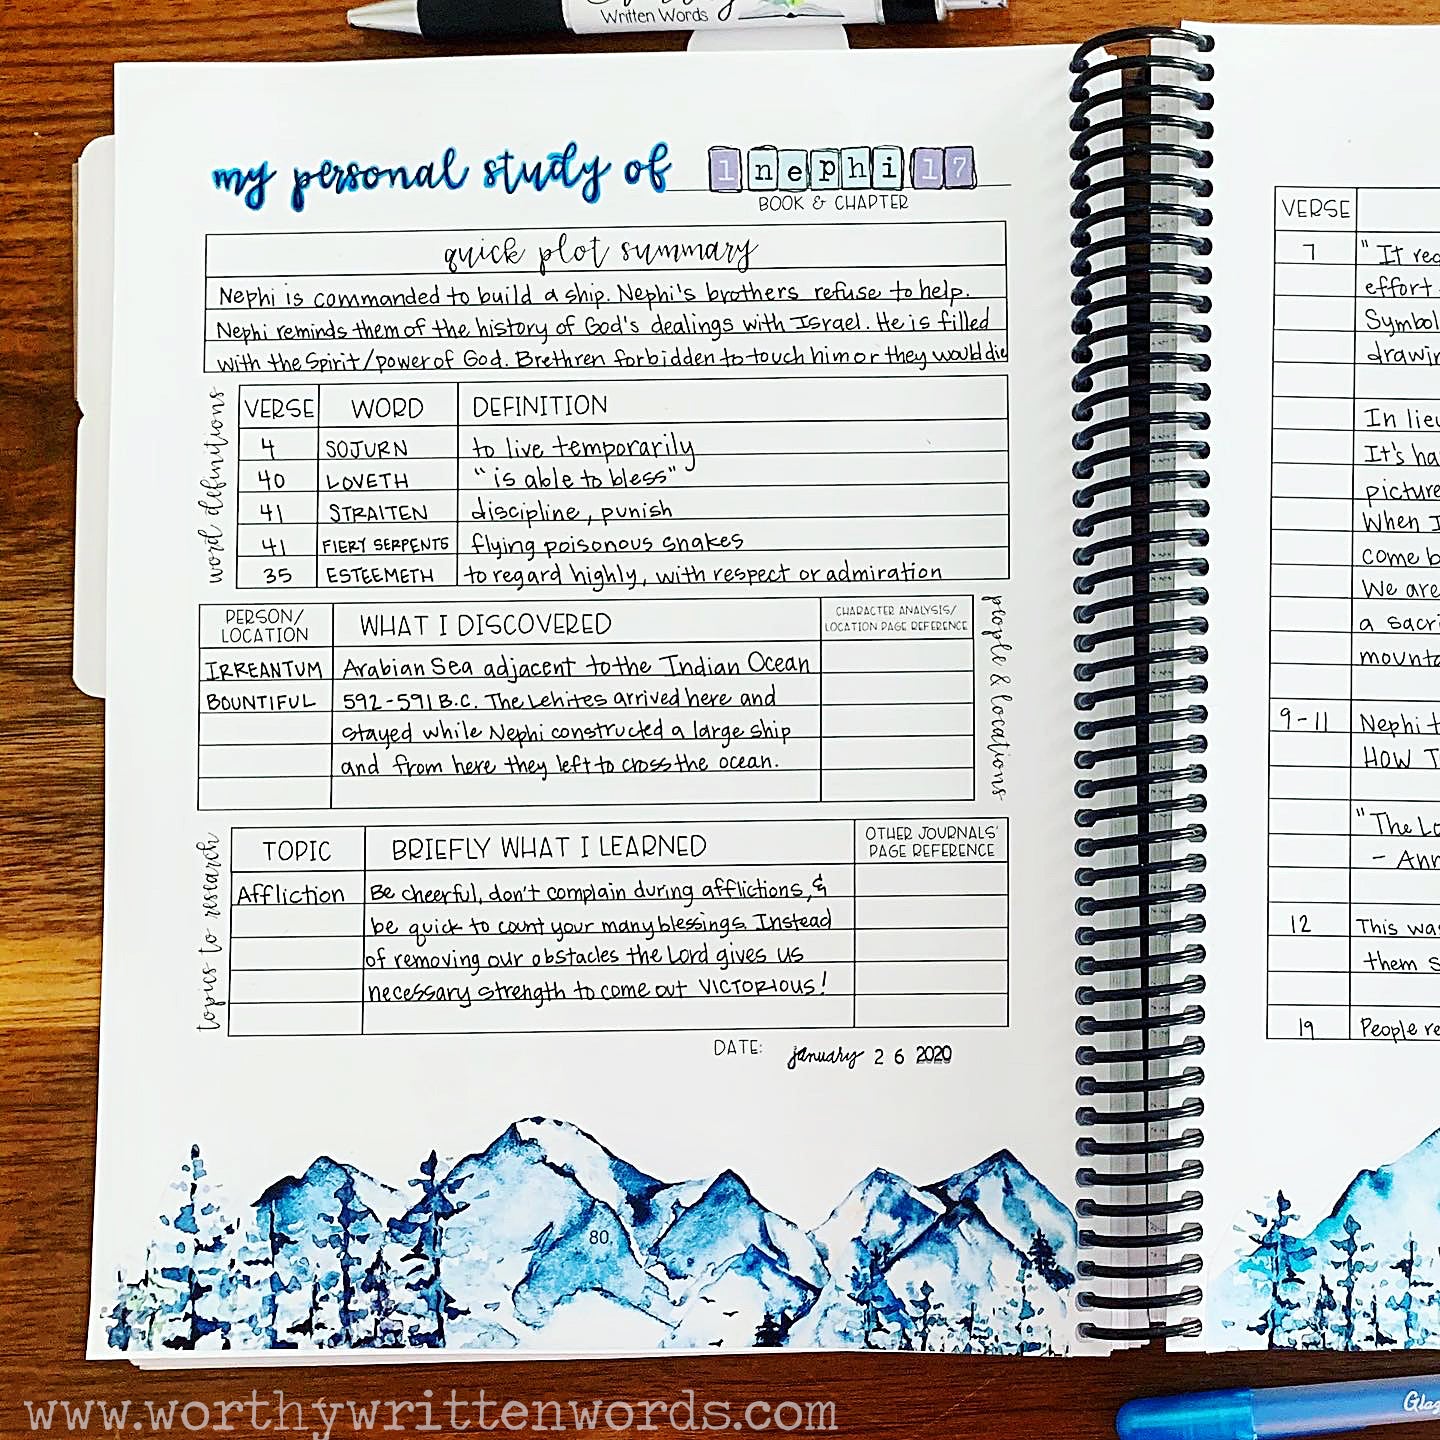 Written Words
my personal study of 1 nephi 17
BOOK & CHAPTER
quick plot summary
Nephi is commanded to build a ship. Nephi's brothers refuse to help.
Nephi reminds them of the history of God's dealings with Israel. He is filled
with the Spirit/power of God. Brethren forbidden to touch him or they would die
word definitions
VERSE WORD DEFINITION
4 SOJURN to live temporarily
40 LOVETH "is able to bless"
41 STRAITEN discipline, punish
41 FIERY SERPENTS flying poisonous snakes
35 ESTEEMETH to regard highly, with respect or admiration
PERSON/
LOCATION
WHAT I DISCOVERED
CHARACTER ANALYSIS/
LOCATION PAGE REFERENCE
people & locations
IRREANTUM Arabian Sea adjacent to the Indian Ocean
BOUNTIFUL 592-591 B.C. The Lehites arrived here and
stayed while Nephi constructed a large ship
and from here they left to cross the ocean.
topics to research
TOPIC BRIEFLY WHAT I LEARNED
OTHER JOURNALS'
PAGE REFERENCE
Affliction Be cheerful, don't complain during afflictions, &
be quick to count your many blessings. Instead
of removing our obstacles the Lord gives us
necessary strength to come out VICTORIOUS!
DATE: january 26 2020
80
VERSE
7 "It
effort
Symbol
In
It's
When I
come
We are
a
9-11 Nephi
HOW
"The
12 This
them
19 People
www.worthywrittenwords.com